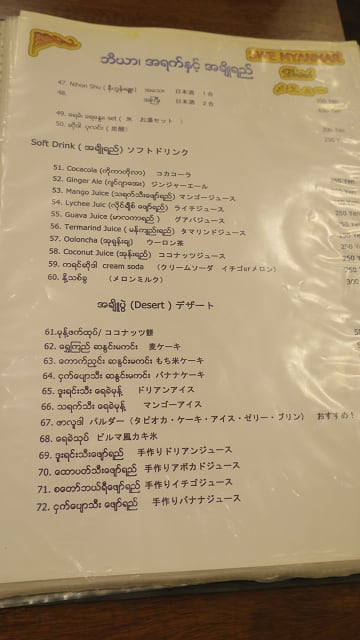 ဘီယာ၊ အရက်နှင့် အချိုရည်
47. Nihon Shu ( နီဟွန်ရှူး) အသေး 日本酒 1合
48. အကြီး 日本酒 2合
49. ရေခဲ ရေနွေး set ( 氷 お湯セット )
50. ဆိုဒါ ပုလင်း ( 炭酸)
Soft Drink ( အချိုရည်) ソフトドリンク
51. Cocacola (ကိုကာကိုလာ) コカコーラ
52. Ginger Ale (ဂျင်ဂျာအေး) ジンジャーエール
53. Mango Juice (သရက်သီးဖျော်ရည်) マンゴージュース
54. Lychee Juic (လိုင်ချီး ဖျော်ရည်) ライチジュース
55. Guava Juice (မာလကာရည် ) グアバジュース
56. Termarind Juice ( မန်ကျည်းရည်) タマリンドジュース
57. Ooloncha (အူရွန်းချ) ウーロン茶
58. Coconut Juice (အုန်းရည်) ココナッツジュース
59. ကရင်ဆိုဒါ cream soda (クリームソーダ イチゴorメロン)
60. နို့သစ်ခွ (メロンミルク)
အချိုပွဲ (Desert ) デザート
61.မုန့်ဖက်ထုပ်/ ココナッツ餅
62. ရွှေကြည် ဆနွင်းမကင်း 麦ケーキ
63. ကောက်ညှင်း ဆနွင်းမကင်း もち米ケーキ
64. ငှက်ပျောသီး ဆနွင်းမကင်း バナナケーキ
65. ဒူးရင်းသီး ရေခဲမုန့် ドリアンアイス
66. သရက်သီး ရေခဲမုန့် マンゴーアイス
67. ဖာလူဒါ パルダー (タピオカ・ケーキ・アイス・ゼリー・プリン) おすすめ!
68. ရေခဲသုပ် ビルマ風カキ氷
69. ဒူးရင်းသီးဖျော်ရည် 手作りドリアンジュース
70. ထောပတ်သီးဖျော်ရည် 手作りアボカドジュース
71. စတော်ဘယ်ရီဖျော်ရည် 手作りイチゴジュース
72. ငှက်ပျောသီး ဖျော်ရည် 手作りバナナジュース